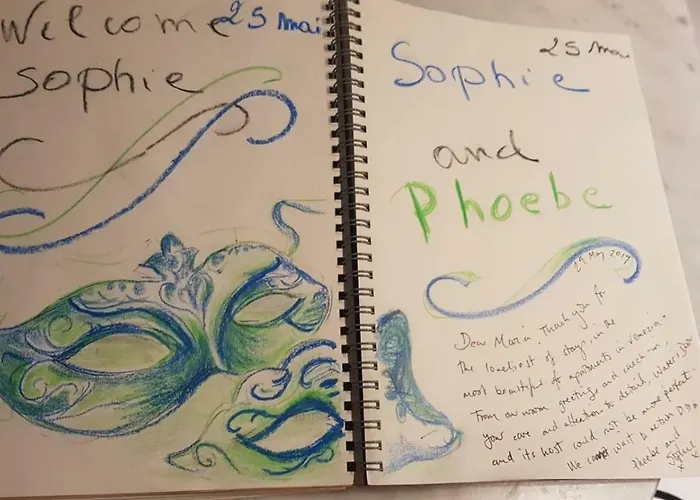 Welcome 25 Mai
Sophie
25 Mai
Sophie
and
Phoebe
29 May 2019
Dear Maria, Thank you for
the loveliest of stays in the
most beautiful of apartments in Venezia.
From our warm greeting and check-in,
your care and attention to detail,
and its host could not be more perfect.
We can't wait to return
Phoebe and
Sophie
x